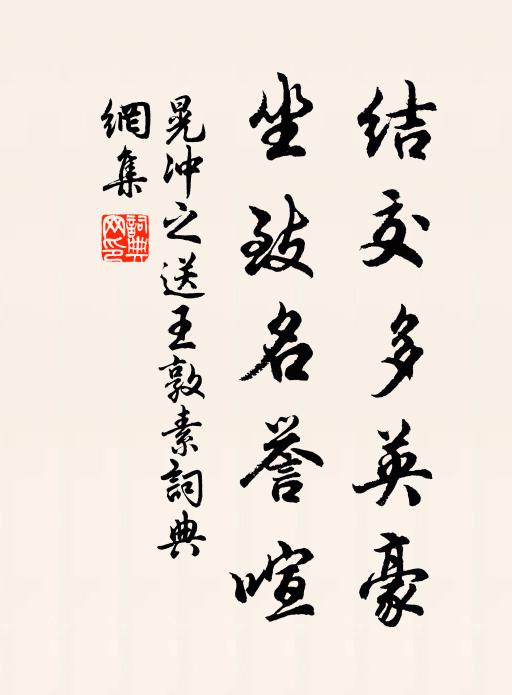 结交多英豪
坐致名誉喧
晁冲之送王敦素詞典
網集
詞典
网印